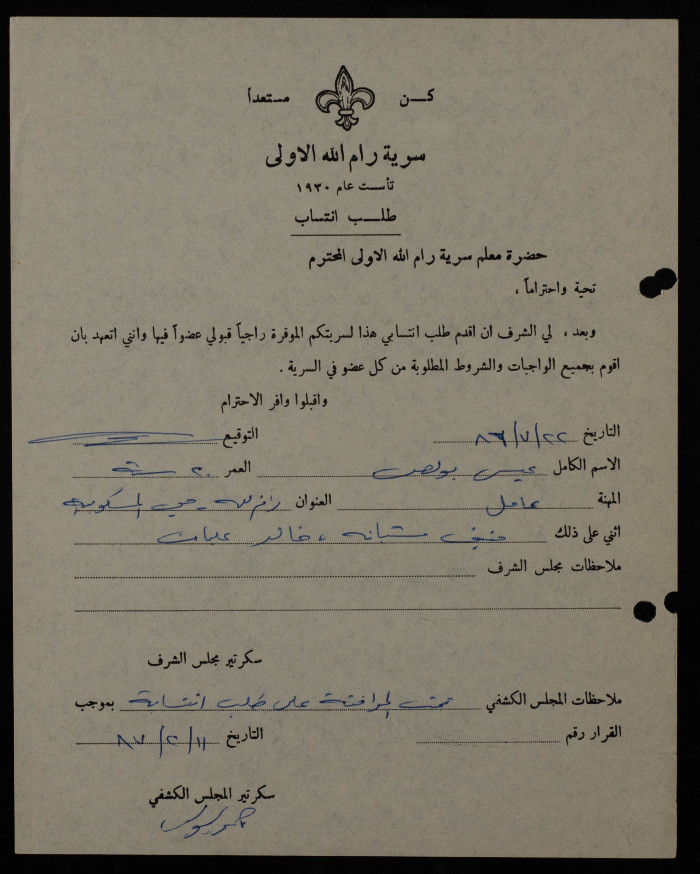 كن مستعداً
سرية رام الله الاولى
تأسست عام ١٩٣٠
طلب انتساب
حضرة معلم سرية رام الله الاولى المحترم
تحية واحتراماً ،
وبعد ، لي الشرف ان اقدم طلب انتسابي هذا لسريتكم الموقرة راجياً قبولي عضواً فيها وانني اتعهد بان
اقوم بجميع الواجبات والشروط المطلوبة من كل عضو في السرية .
واقبلوا وافر الاحترام
التاريخ ٨٦/٧/٢٢ التوقيع
الاسم الكامل عيسى بولص العمر ٢٠ سنة
المهنة عامل العنوان رام الله - حي المسكوبية
اثني على ذلك شبانه ، خالد
ملاحظات مجلس الشرف
سكرتير مجلس الشرف
ملاحظات المجلس الكشفي تمت الموافقة على طلب انتسابة بموجب
القرار رقم التاريخ ٨٧/٢/١١
سكرتير المجلس الكشفي